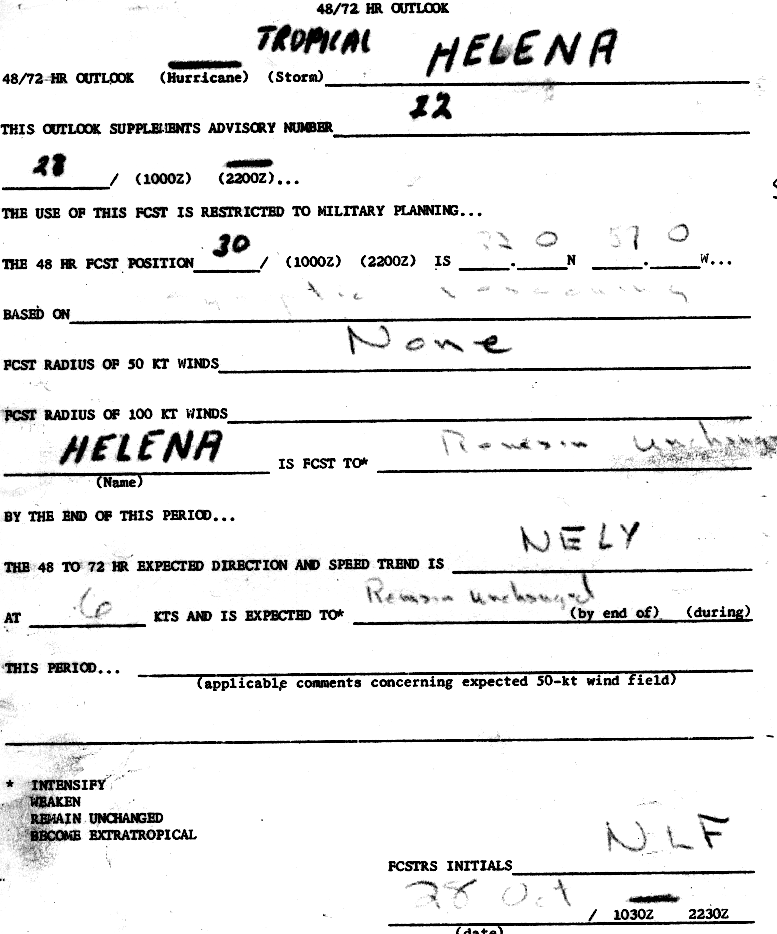 48/72 HR OUTLOOK
TROPICAL HELENA
48/72 HR OUTLOOK (Hurricane) (Storm)
22
THIS OUTLOOK SUPPLEMENTS ADVISORY NUMBER
28 / (1000Z) (2200Z)...
THE USE OF THIS FCST IS RESTRICTED TO MILITARY PLANNING...
THE 48 HR FCST POSITION 30 / (1000Z) (2200Z) IS 0 N 57 0 W...
BASED ON
FCST RADIUS OF 50 KT WINDS None
FCST RADIUS OF 100 KT WINDS
HELENA IS FCST TO* Remain unchange
(Name)
BY THE END OF THIS PERIOD...
THE 48 TO 72 HR EXPECTED DIRECTION AND SPEED TREND IS NELY
AT 6 KTS AND IS EXPECTED TO* Remain unchanged (by end of) (during)
THIS PERIOD...
(applicable comments concerning expected 50-kt wind field)
* INTENSIFY
WEAKEN
REMAIN UNCHANGED
BECOME EXTRATROPICAL
FCSTRS INITIALS NLF
28 Oct / 1030Z 2230Z
(date)